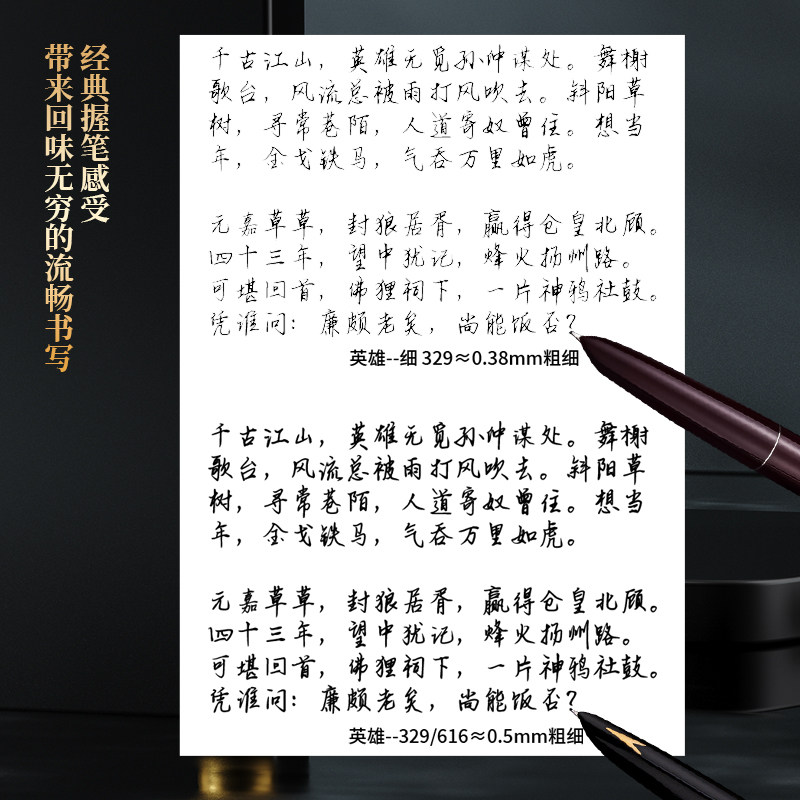 经典握笔感受
带来回味无穷的流畅书写
千古江山，英雄无觅孙仲谋处。舞榭
歌台，风流总被雨打风吹去。斜阳草
树，寻常巷陌，人道寄奴曾住。想当
年，金戈铁马，气吞万里如虎。
元嘉草草，封狼居胥，赢得仓皇北顾。
四十三年，望中犹记，烽火扬州路。
可堪回首，佛狸祠下，一片神鸦社鼓。
凭谁问：廉颇老矣，尚能饭否？
英雄--细 329≈0.38mm粗细
千古江山，英雄无觅孙仲谋处。舞榭
歌台，风流总被雨打风吹去。斜阳草
树，寻常巷陌，人道寄奴曾住。想当
年，金戈铁马，气吞万里如虎。
元嘉草草，封狼居胥，赢得仓皇北顾。
四十三年，望中犹记，烽火扬州路。
可堪回首，佛狸祠下，一片神鸦社鼓。
凭谁问：廉颇老矣，尚能饭否？
英雄--329/616≈0.5mm粗细